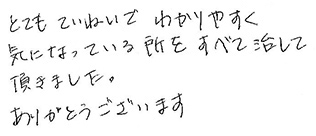 とても ていねいで わかりやすく
気になっている所を すべて治して
頂きました。
ありがとうございます